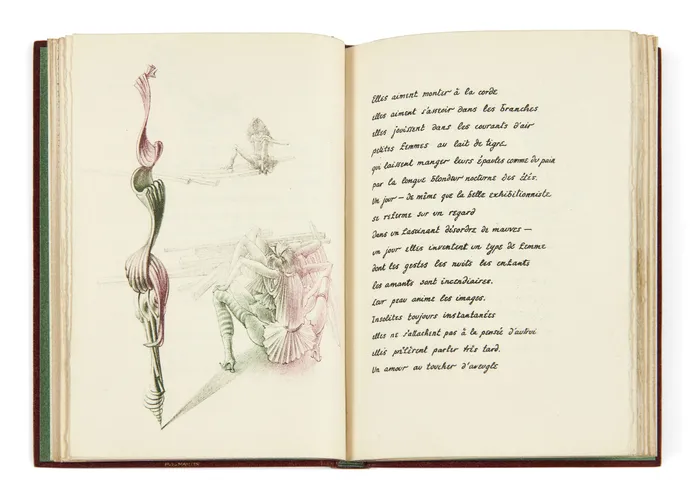 Elles aiment monter à la corde
elles aiment s'asseoir dans les branches
elles jouissent dans les courants d'air
petites femmes au lait de tigre
qui laissent manger leurs épaules comme du pain
par la longue blondeur nocturne des étés.
Un jour — de même que la belle exhibitionniste
se referme sur un regard
dans un fascinant désordre de mauves —
un jour elles inventent un type de femme
dont les gestes les nuits les enfants
les amants sont incendiaires.
Leur peau anime les images.
Insolites toujours instantanées
elles ne s'attachent pas à la pensée d'autrui
elles préfèrent parler très tard.
Un amour au toucher d'aveugle